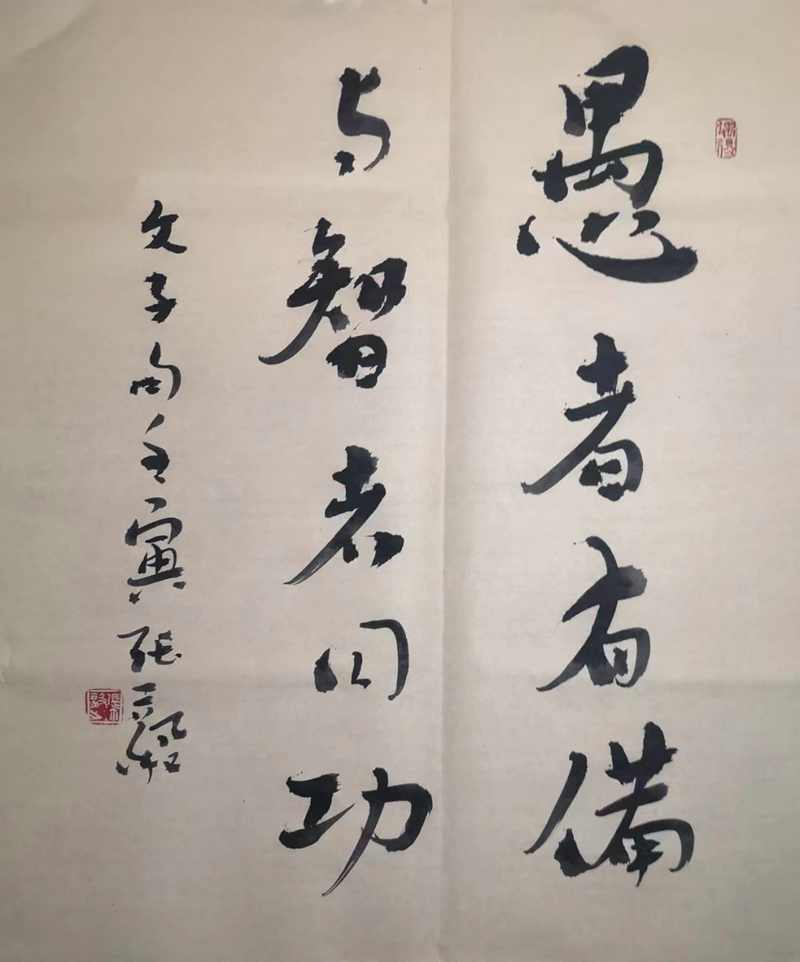 愚者有備
与智者同功
文子句壬寅張